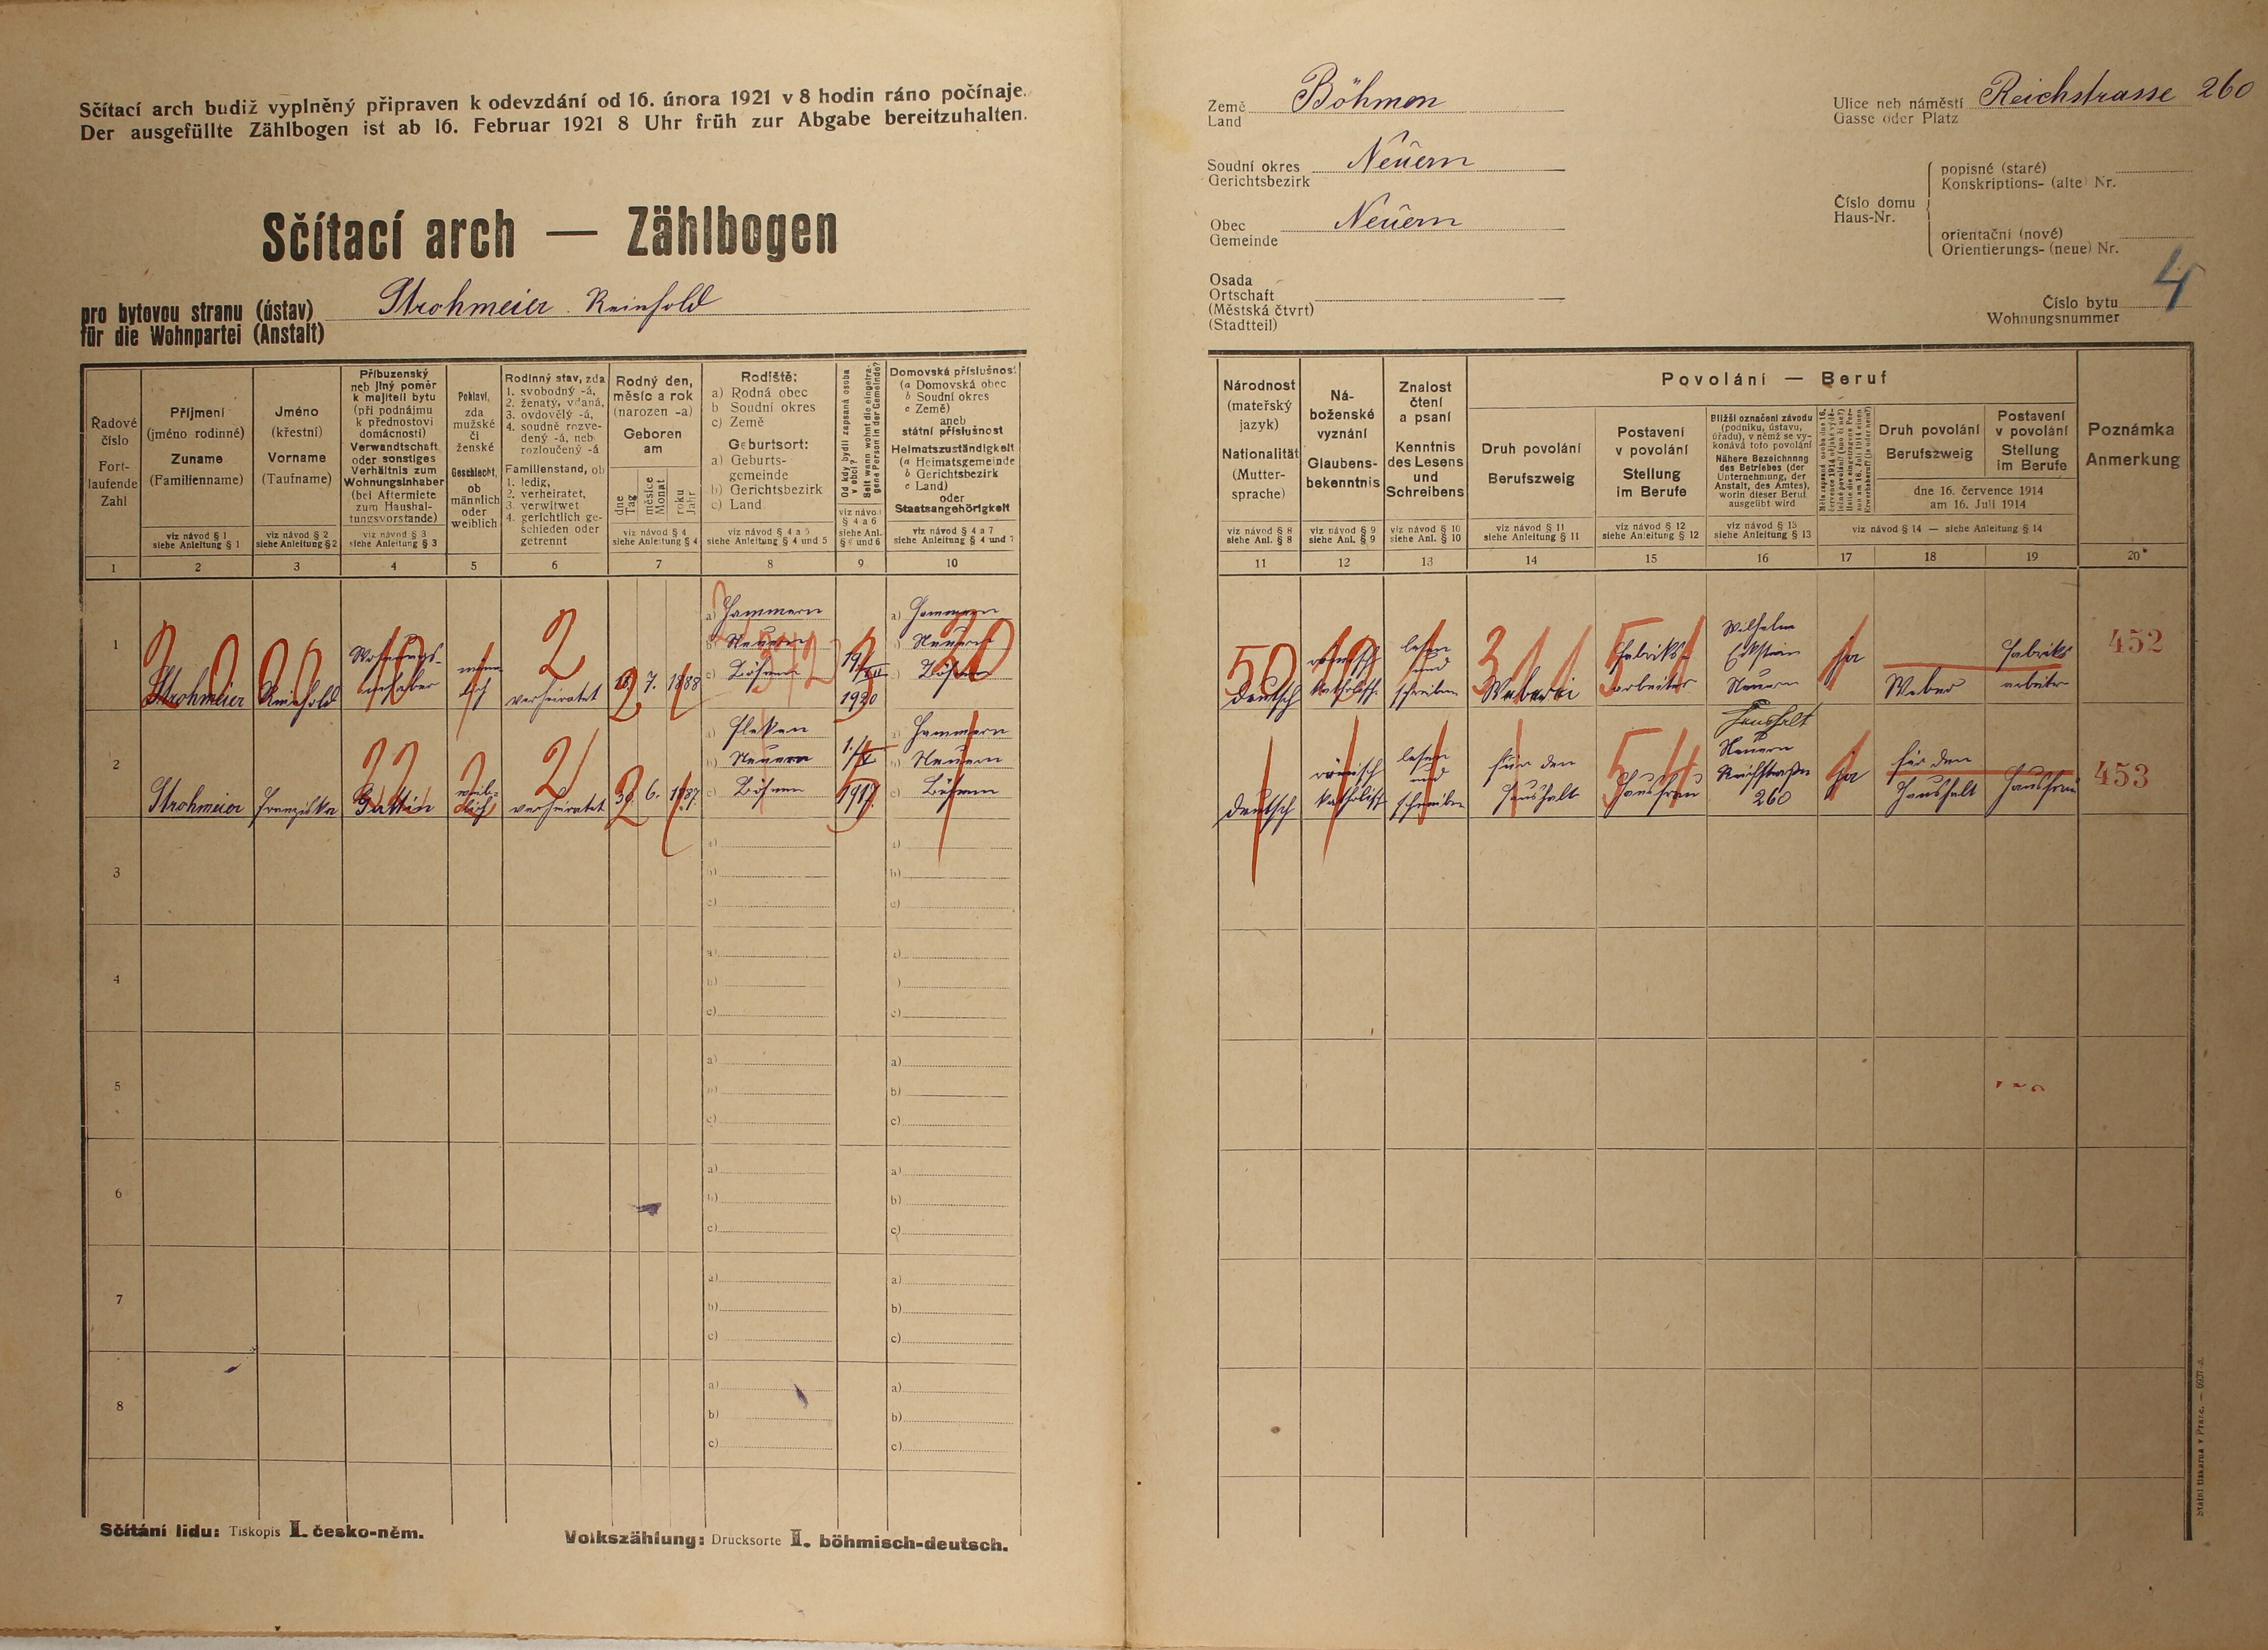 Sčítací arch budiž vyplněný připraven k odevzdání od 16. února 1921 v 8 hodin ráno počínaje.
Der ausgefüllte Zählbogen ist ab 16. Februar 1921 8 Uhr früh zur Abgabe bereitzuhalten.
Sčítací arch — Zählbogen
pro bytovou stranu (ústav)
für die Wohnpartei (Anstalt)
Strohmeier Reinhold
Země
Land
Böhmen
Soudní okres
Gerichtsbezirk
Neuern
Obec
Gemeinde
Neuern
Osada
Ortschaft
(Městská čtvrť)
(Stadtteil)
Ulice neb náměstí
Gasse oder Platz
Reichstrasse 260
Číslo domu
Haus-Nr.
popisné (staré)
Konskriptions- (alte) Nr.
orientační (nové)
Orientierungs- (neue) Nr.
Číslo bytu
Wohnungsnummer
4
Řadové
číslo
Fort-
laufende
Zahl
Příjmení
(jméno rodinné)
Zuname
(Familienname)
viz návod § 1
siehe Anleitung § 1
Jméno
(křestní)
Vorname
(Taufname)
viz návod § 2
siehe Anleitung § 2
Příbuzenský
neb jiný poměr
k majiteli bytu
(při podnájmu
k přednostovi
domácnosti)
Verwandtschaft
oder sonstiges
Verhältnis zum
Wohnungsinhaber
(bei Aftermiete
zum Haushal-
tungsvorstande)
viz návod § 3
siehe Anleitung § 3
Pohlaví,
zda
mužské
či
ženské
Geschlecht,
ob
männlich
oder
weiblich
Rodinný stav, zda
1. svobodný -á,
2. ženatý, vdaná,
3. ovdovělý -á,
4. soudně rozve-
dený -á, neb
rozloučený -á
Familienstand, ob
1. ledig,
2. verheiratet,
3. verwitwet
4. gerichtlich ge-
schieden oder
getrennt
Rodný den,
měsíc a rok
(narozen -a)
Geboren
am
dne
Tag
měsíce
Monat
roku
Jahr
viz návod § 4
siehe Anleitung § 4
Rodiště:
a) Rodná obec
b Soudní okres
c) Země
Geburtsort:
a) Geburts-
gemeinde
b) Gerichtsbezirk
c) Land
viz návod § 4 a 5
siehe Anleitung § 4 und 5
Od kdy bydlí zapsaná osoba
v obci?
Seit wann wohnt die eingetra-
gene Person in der Gemeinde?
viz návod
§ 4 a 6
siehe Anl.
§ 4 und 6
Domovská příslušnost
(a Domovská obec
b Soudní okres
c Země)
aneb
státní příslušnost
Heimatszuständigkeit
(a Heimatsgemeinde
b Gerichtsbezirk
c Land)
oder
Staatsangehörigkeit
viz návod § 4 a 7
siehe Anleitung § 4 und 7
Národnost
(mateřský
jazyk)
Nationalität
(Mutter-
sprache)
viz návod § 8
siehe Anl. § 8
Ná-
boženské
vyznání
Glaubens-
bekenntnis
viz návod § 9
siehe Anl. § 9
Znalost
čtení
a psaní
Kenntnis
des Lesens
und
Schreibens
viz návod § 10
siehe Anl. § 10
Povolání — Beruf
Druh povolání
Berufszweig
viz návod § 11
siehe Anleitung § 11
Postavení
v povolání
Stellung
im Berufe
viz návod § 12
siehe Anleitung § 12
Bližší označení závodu
(podniku, ústavu,
úřadu), v němž se vy-
konává toto povolání
Nähere Bezeichnung
des Betriebes (der
Unternehmung, der
Anstalt, des Amtes),
worin dieser Beruf
ausgeübt wird
viz návod § 13
siehe Anleitung § 13
Druh povolání
Berufszweig
Postavení
v povolání
Stellung
im Berufe
dne 16. července 1914
am 16. Juli 1914
viz návod § 14 — siehe Anleitung § 14
Poznámka
Anmerkung
1 2 3 4 5 6 7 8 9 10 11 12 13 14 15 16 17 18 19 20
1
Strohmeier
Reinhold
Wohnungs-
inhaber
männ-
lich
2
verheiratet
7. 1888
a) Hammern
b) Neuern
c) Böhmen
19/XII
1920
a) Hammern
b) Neuern
c) Böhmen
50
deutsch
römisch
katholisch
lesen
und
schreiben
311
Weberei
Fabriks-
arbeiter
Wilhelm
Eckstein
Neuern
ja
Weber
Fabriks
arbeiter
452
2
Strohmeier
Franziska
Gattin
weib-
lich
2
verheiratet
30. 6. 1887.
a) Fleken
b) Neuern
c) Böhmen
1917
a) Hammern
b) Neuern
c) Böhmen
deutsch
römisch
katholisch
lesen
und
schreiben
für den
Haushalt
54
Hausfrau
Haushalt
Neuern
Reichstraße
260
ja
für den
Haushalt
Hausfrau
453
3
a)
b)
c)
a)
b)
c)
4
a)
b)
c)
)
c)
5
a)
b)
c)
a)
b)
c)
6
a)
b)
c)
a)
b)
c)
7
a)
b)
c)
a)
b)
c)
8
a)
b)
c)
a)
b)
c)
Sčítání lidu: Tiskopis I. česko-něm.
Volkszählung: Drucksorte I. böhmisch-deutsch.
Státní tiskárna v Praze.